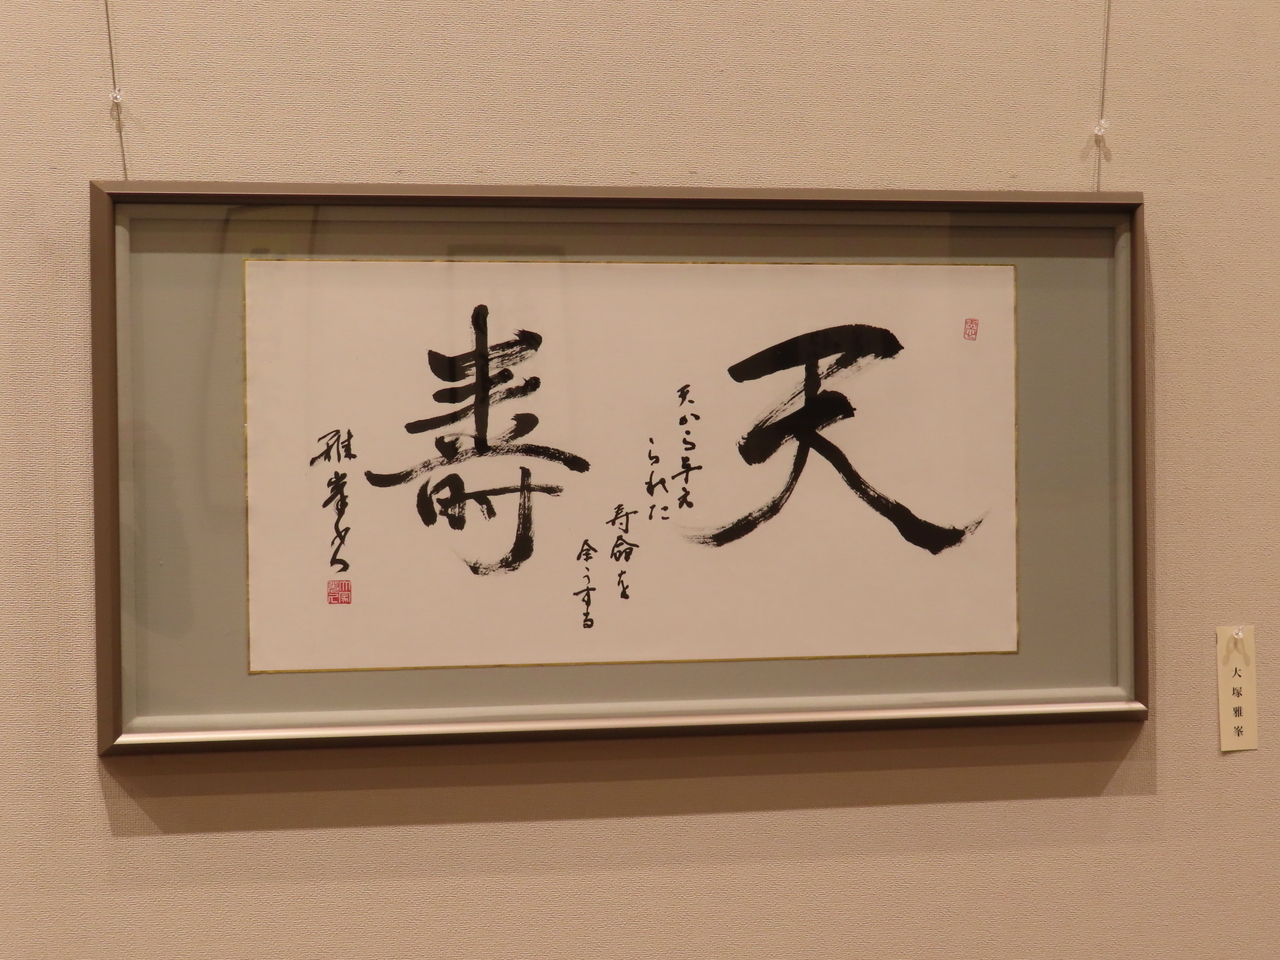 天
天から与え
られた
寿命を
全うする
壽
雅峯書
大塚雅峯